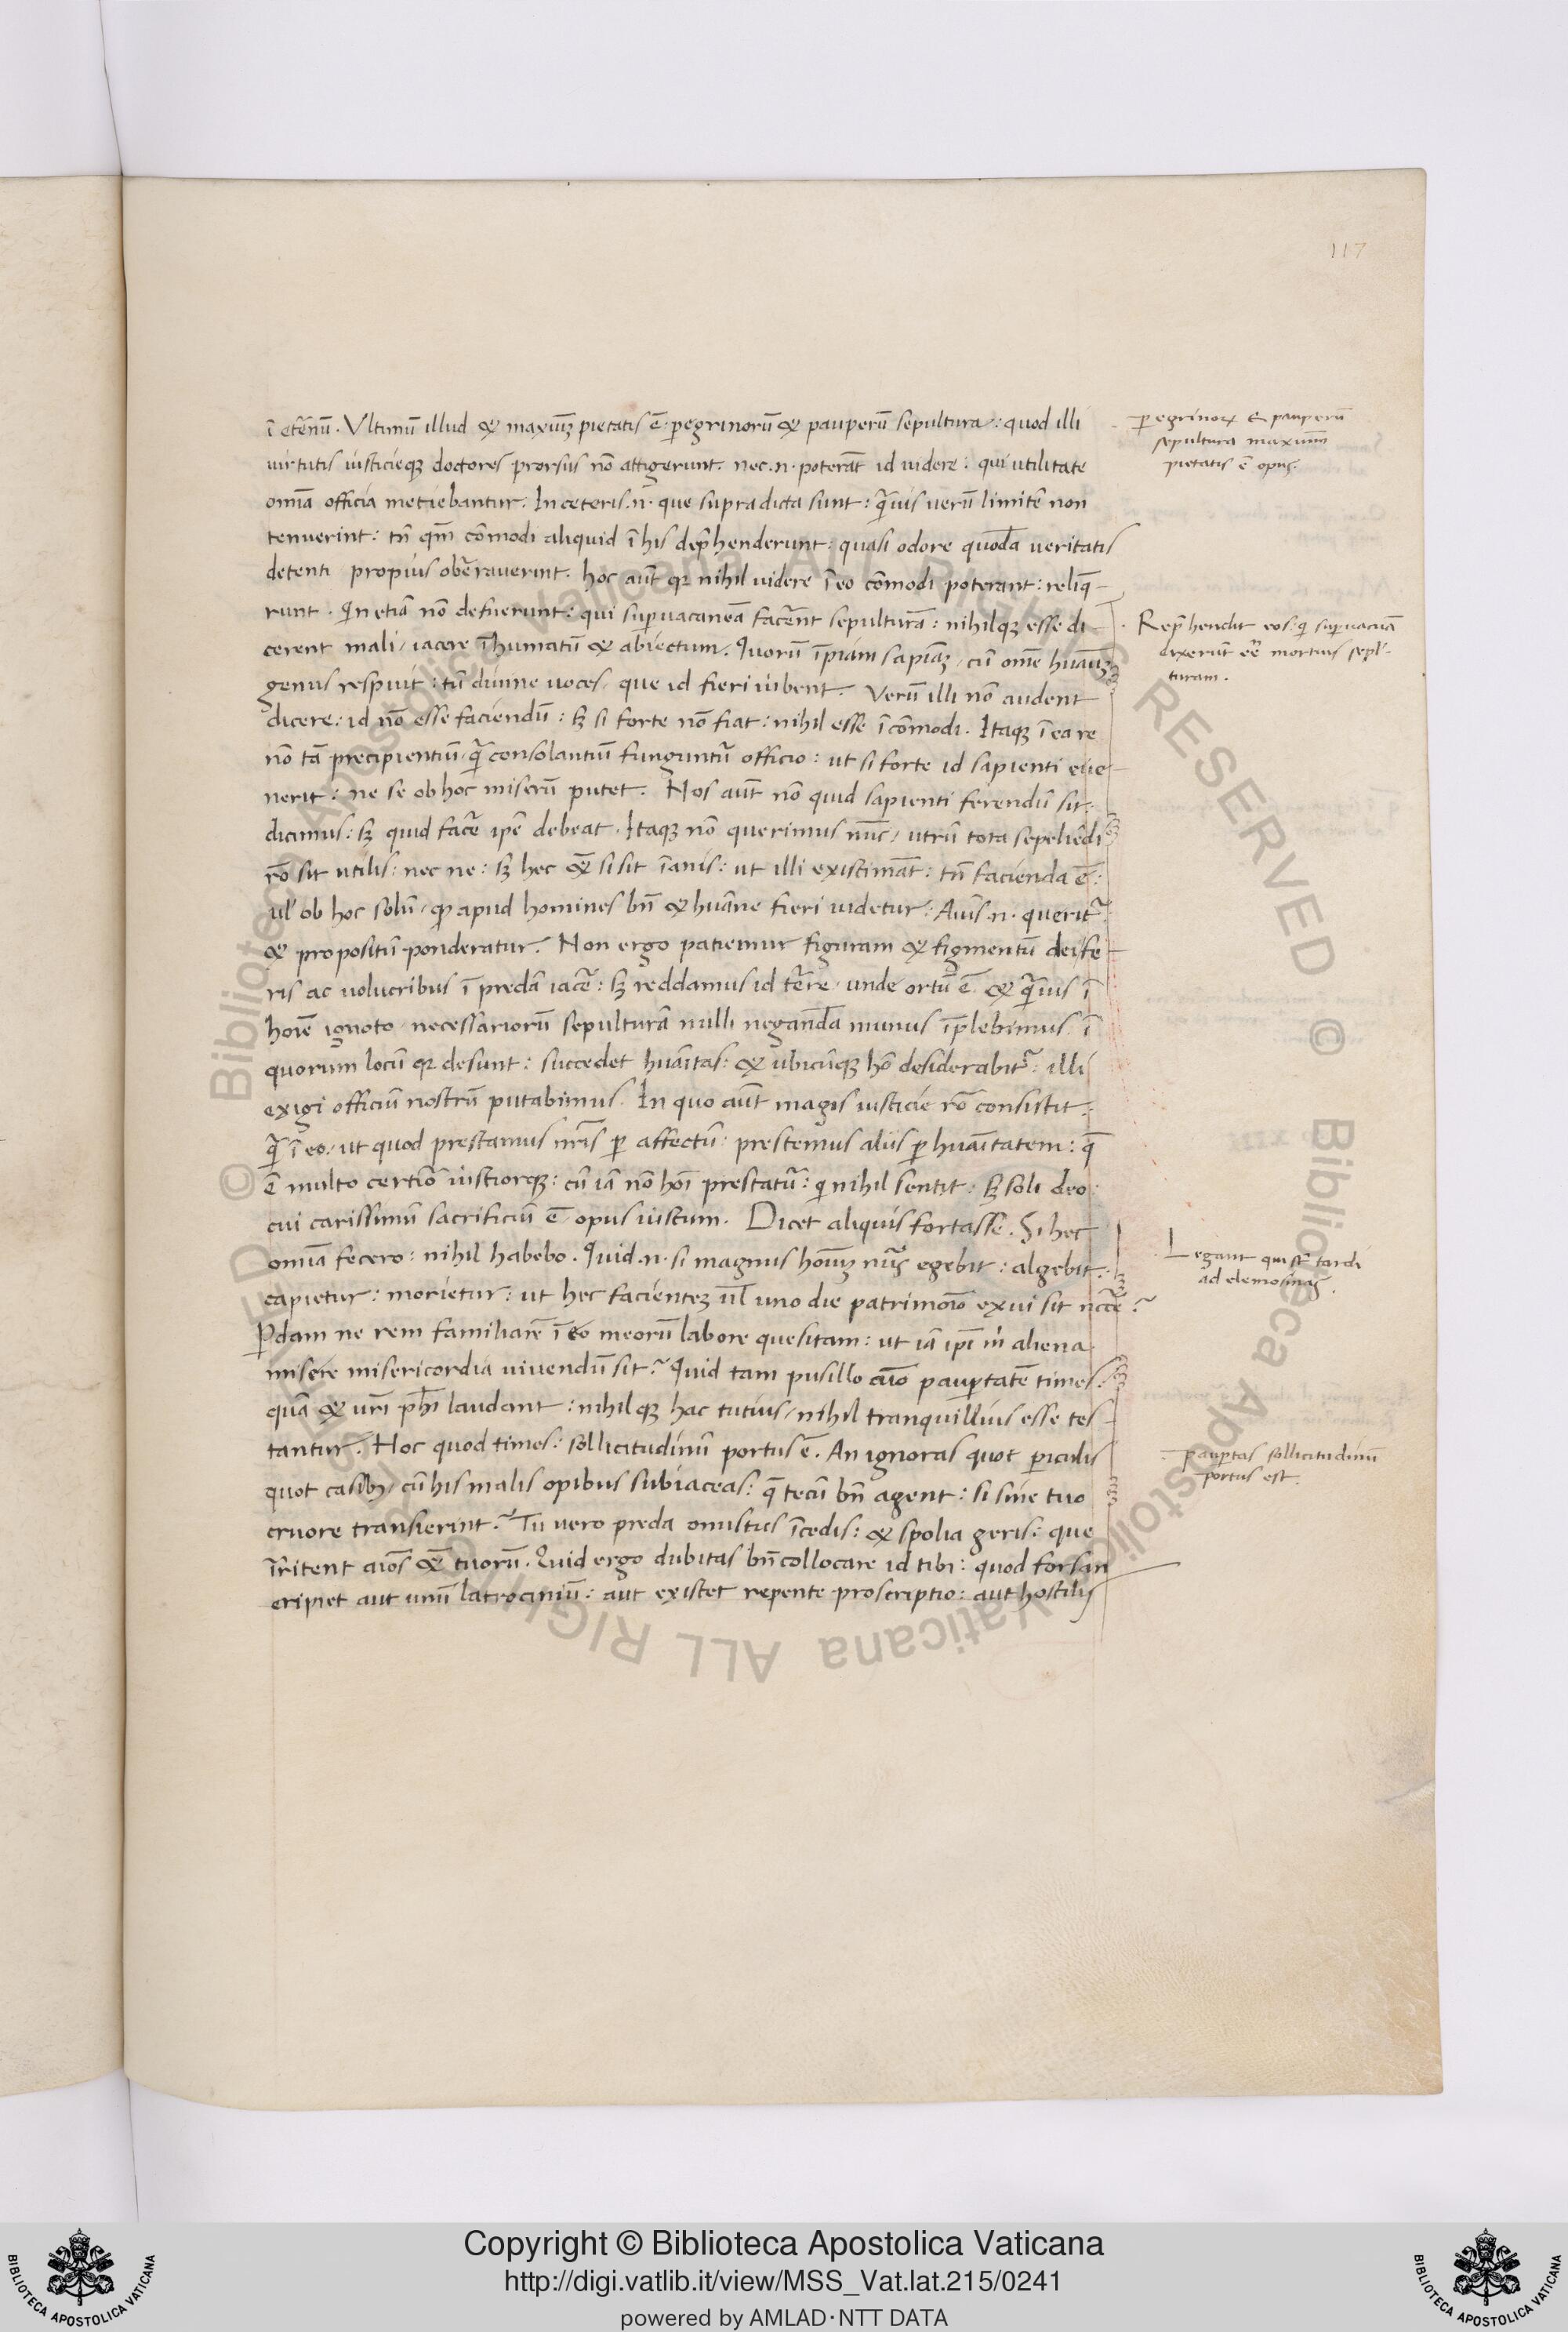 117
ī eteͬnū. Vltimū illud & maximꝫ pietatis ē peregrinorū & pauperū sepultura: quod illi
uirtutis iusticieqꝫ doctores prorsus nō attigerunt. nec .n. poterāt id uidere: qui utilitate
omīa officia metiebantur. In ceteris .n. que supra dicta sunt: q̄uis uerū limitē non
tenuerint: tn̄ qm̄ cōmodi aliquid ī his dep̄henderunt: quasi odore quodā ueritatis
detenti propius oberrauerint. hoc aūt qr nihil uidere ī eo cōmodi poterant: reliq̄
runt. Qn etiā nō defuerunt: qui suꝑuacaneā facerēt sepulturā: nihilqꝫ esse di
cerent mali, iacere īhumatū & abiectum. Quorū īpiam sapīaꝫ, cū om̄e huānꝫ
genus respuit: tū diuine uoces, que id fieri iubent. Verū illi nō audent
dicere: id nō esse faciendū: sꝫ si forte nō fiat: nihil esse īcōmodi. Itaqꝫ ī ea re
nō tā precipientiū q̄ consolantiū funguntur̄ officio: ut si forte id sapienti eue
nerit: ne se ob hoc miserū putet. Nos aūt nō quid sapienti ferendū sit:
dicimus: sꝫ quid facer̄e ip̄e debeat. Itaqꝫ nō querimus nūc, utrū tota sepeliēdi
rō sit utilis: nec ne: sꝫ hec & si sit īanis: ut illi existimāt: tn̄ facienda ē:
ul̄ ob hoc solū, qꝫ apud homines bn̄ & huāne fieri uidetur: Aīus .n. querit̄
& propositū ponderatur. Non ergo patiemur figuram & figmentū dei fe
ris ac uolucribus ī predā iacer̄e: sꝫ reddamus id ter̄re, unde ortū ē & q̄uis ī
hoīe ignoto necessariorū sepulturā nulli negandā munus īplebimus ī
quorum locū qr desunt: succedet huāītas: & ubicūqꝫ hō desiderabit̄: illi
exigi officiū nostrū putabimus. In quo aūt magis iusticie rō consistit:
q̄ ī eo, ut quod prestamus nr̄is ꝑ affectū: prestemus aliis ꝑ huāītatem: q̄
ē multo certiō iustiorqꝫ: cū iā nō hoī prestatur̄: q nihil sentit: sꝫ soli deo:
cui carissimū sacrificiū ē opus iustum. Dicet aliquis fortasse. Si hec
omīa fecero: nihil habebo. Quid .n. si magnus hoīuꝫ nūs egebit: algebit:
capietur: morietur: ut hec facienteꝫ ul̄ uno die patrimoīo exui sit nec̄ce?
Pdam ne rem familiarē ī eo meorū labore quesitam: ut iā ip̄i m̄ aliena
misere misericordia uiuendū sit? Quid tam pusillo aīo pauꝑtatē times:
quā & ur̄i ph̄i laudant: nihilqꝫ hac tutius, nihil tranquillius esse tes
tantur. Hoc quod times: sollicitudinū portus ē. An ignoras quot ꝑiculis
quot casibꝫ, cū his malis opibus subiaceas: q̄ tecū bn̄ agent: si sine tuo
cruore transierint? Tu uero preda onustus īcedis: & spolia geris: que
irritent aīos & tuorū. Quid ergo dubitas bn̄ collocare id tibi: quod forsan
eripiet aut unū latrociniū: aut existet repente proscriptio: aut hostilis
ꝑegrinoꝝ & pauperū
sepultura maximū
pietatis ē opus.
Rep̄hendit eos: q suꝑuacuā
dixerūt eē mortuis sepl̄
turam.
Legant qui sūt tardi
ad elemosinas.
pauꝑtas sollicitudinū
portus est.
© Biblioteca Apostolica Vaticana ALL RIGHTS RESERVED © Biblioteca Apostolica Vaticana ALL RIGHTS RESERVED
Copyright © Biblioteca Apostolica Vaticana
http://digi.vatlib.it/view/MSS_Vat.lat.215/0241
powered by AMLAD·NTT DATA
BIBLIOTECA APOSTOLICA VATICANA
BIBLIOTECA APOSTOLICA VATICANA